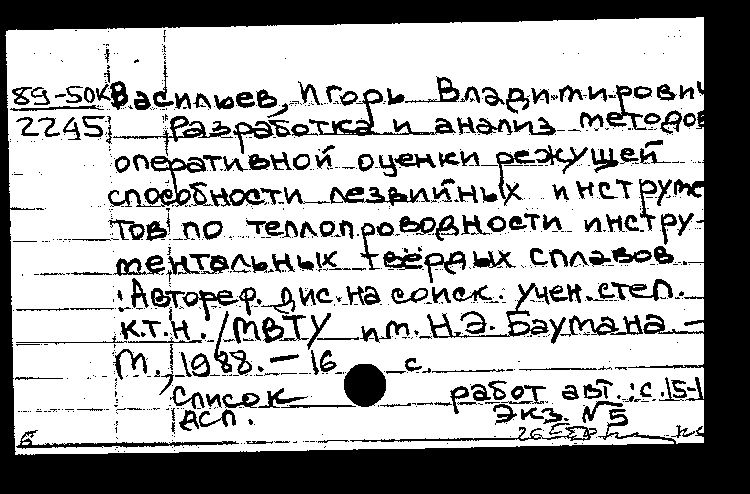 89-50к Васильев, Игорь Владимирович
2245 Разработка и анализ методов
оперативной оценки режущей
способности лезвийных инструме
тов по теплопроводности инстру-
ментальных твёрдых сплавов.
: Автореф. дис. на соиск. учен. степ.
к.т.н. / МВТУ им. Н.Э. Баумана. –
М., 1988. – 16 с.
Список работ авт.: с. 15-1
ДСП. Экз. №5
Б